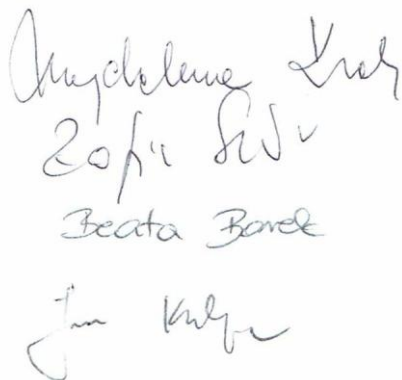 Magdalena Krol
Zofia
Beata Borek
Jan